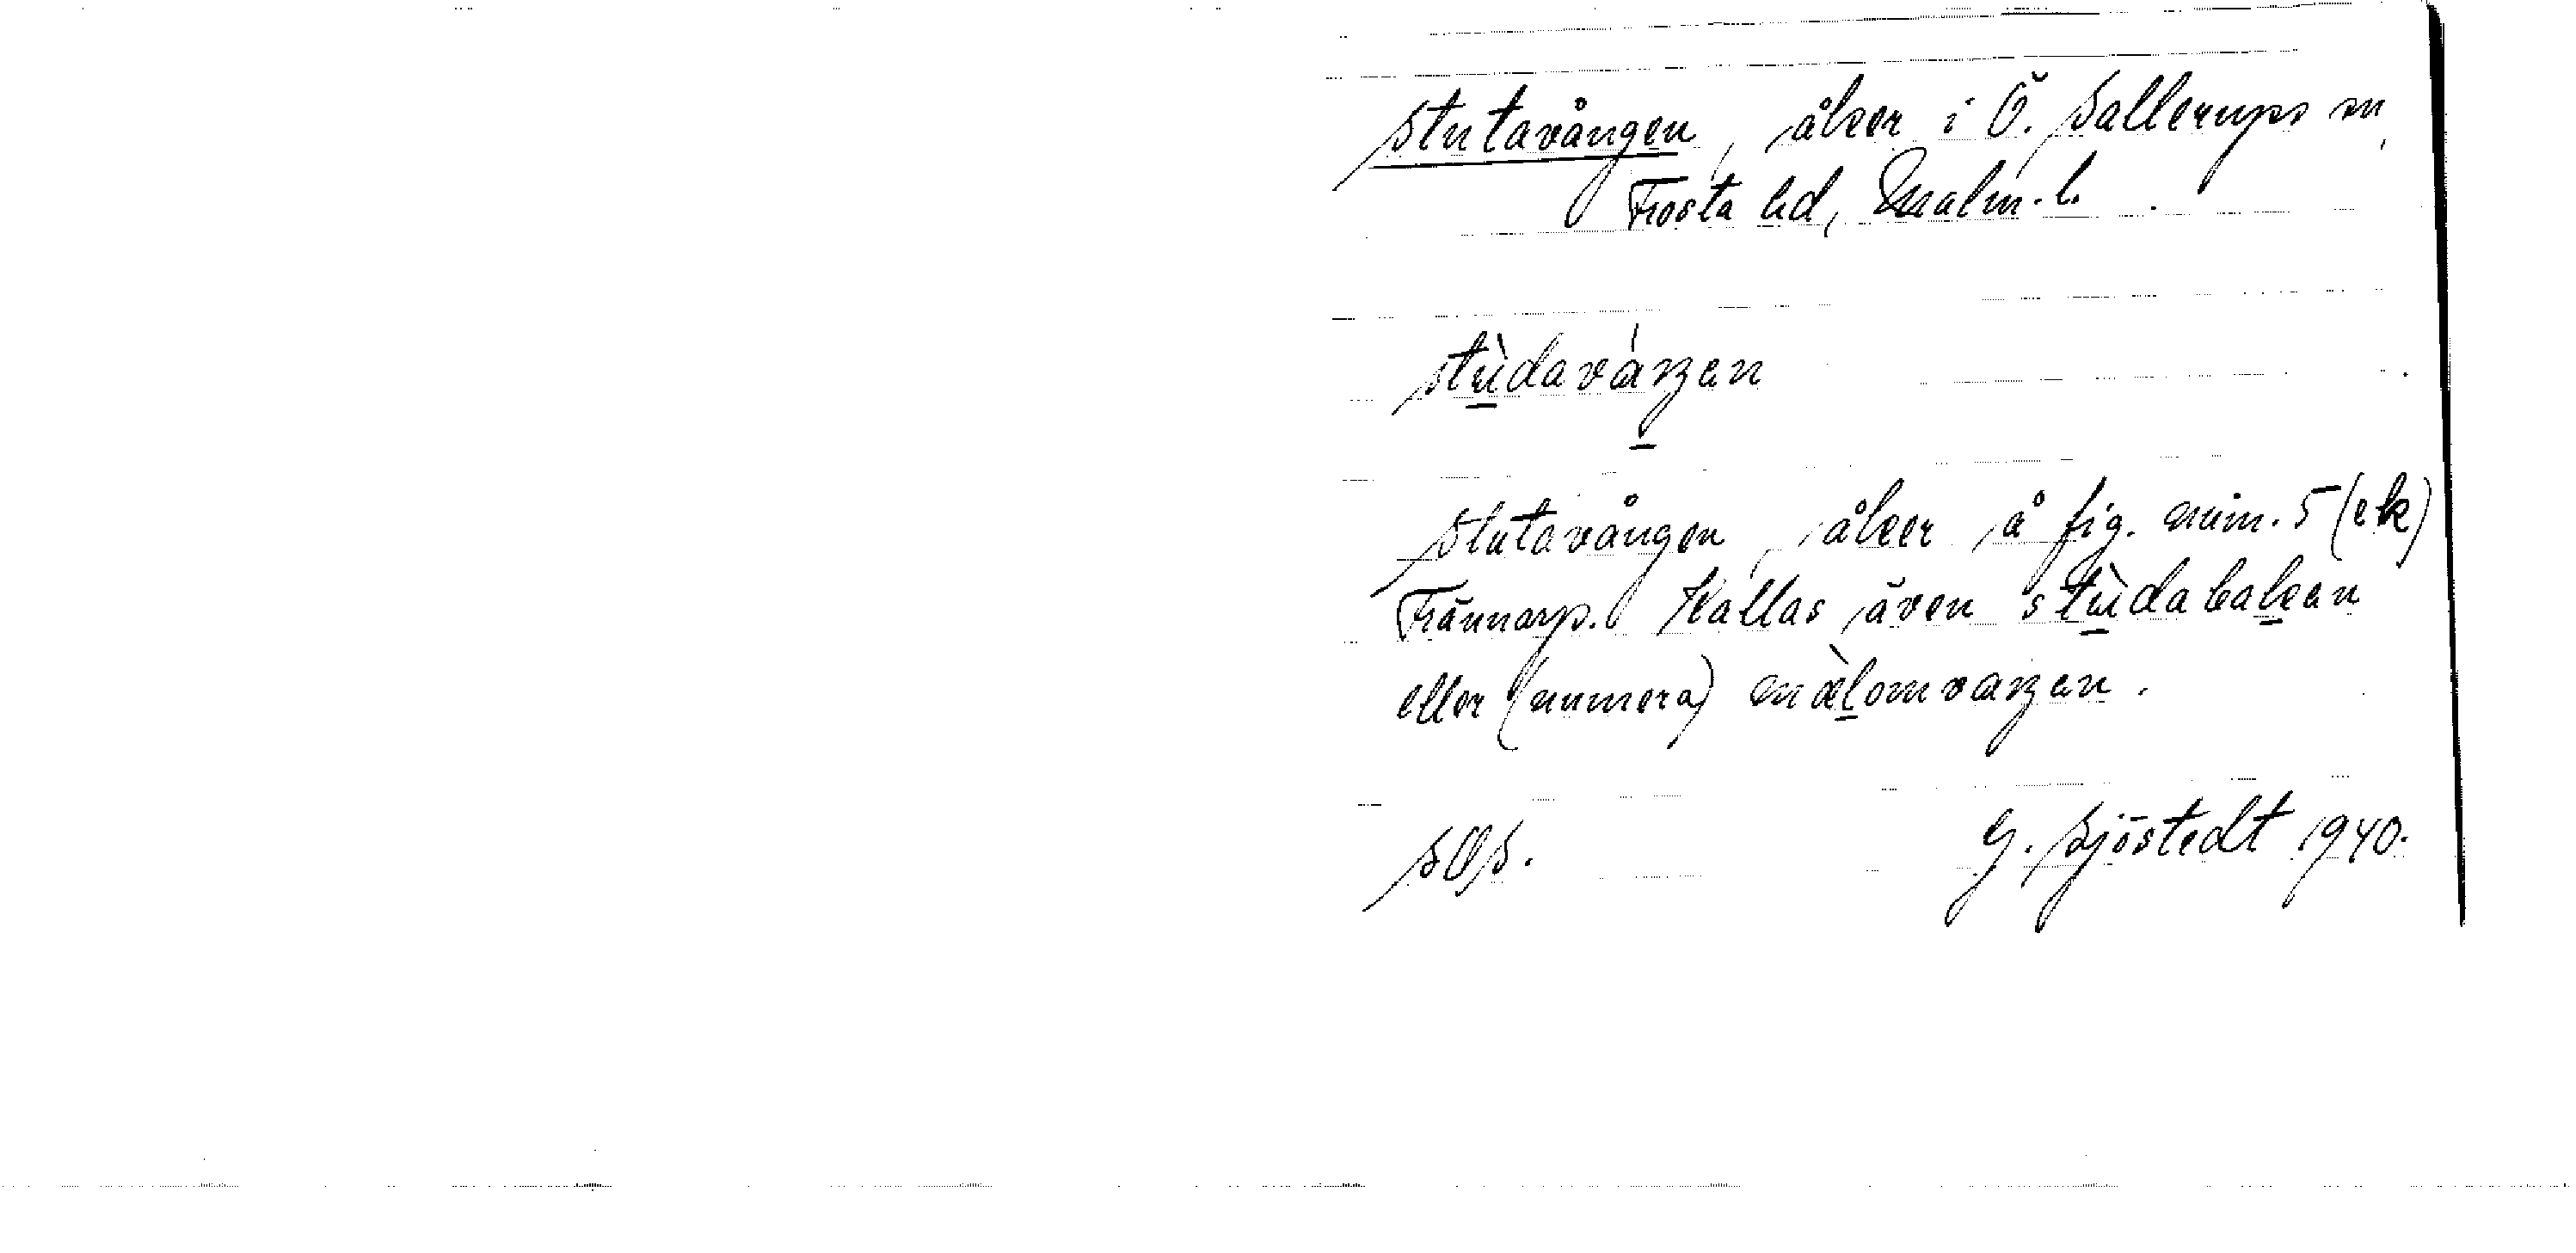 Stutavången, åker i Ö. Sallerups sn,
Frosta hd, Malm. l.
stùdaváŋen
Stutavången, åker å fig. num. 5 (ek)
Trännarp. Kallas även stùdabakan
eller (numera) mælomvaŋen.
SOS. G. Sjöstedt 1940.